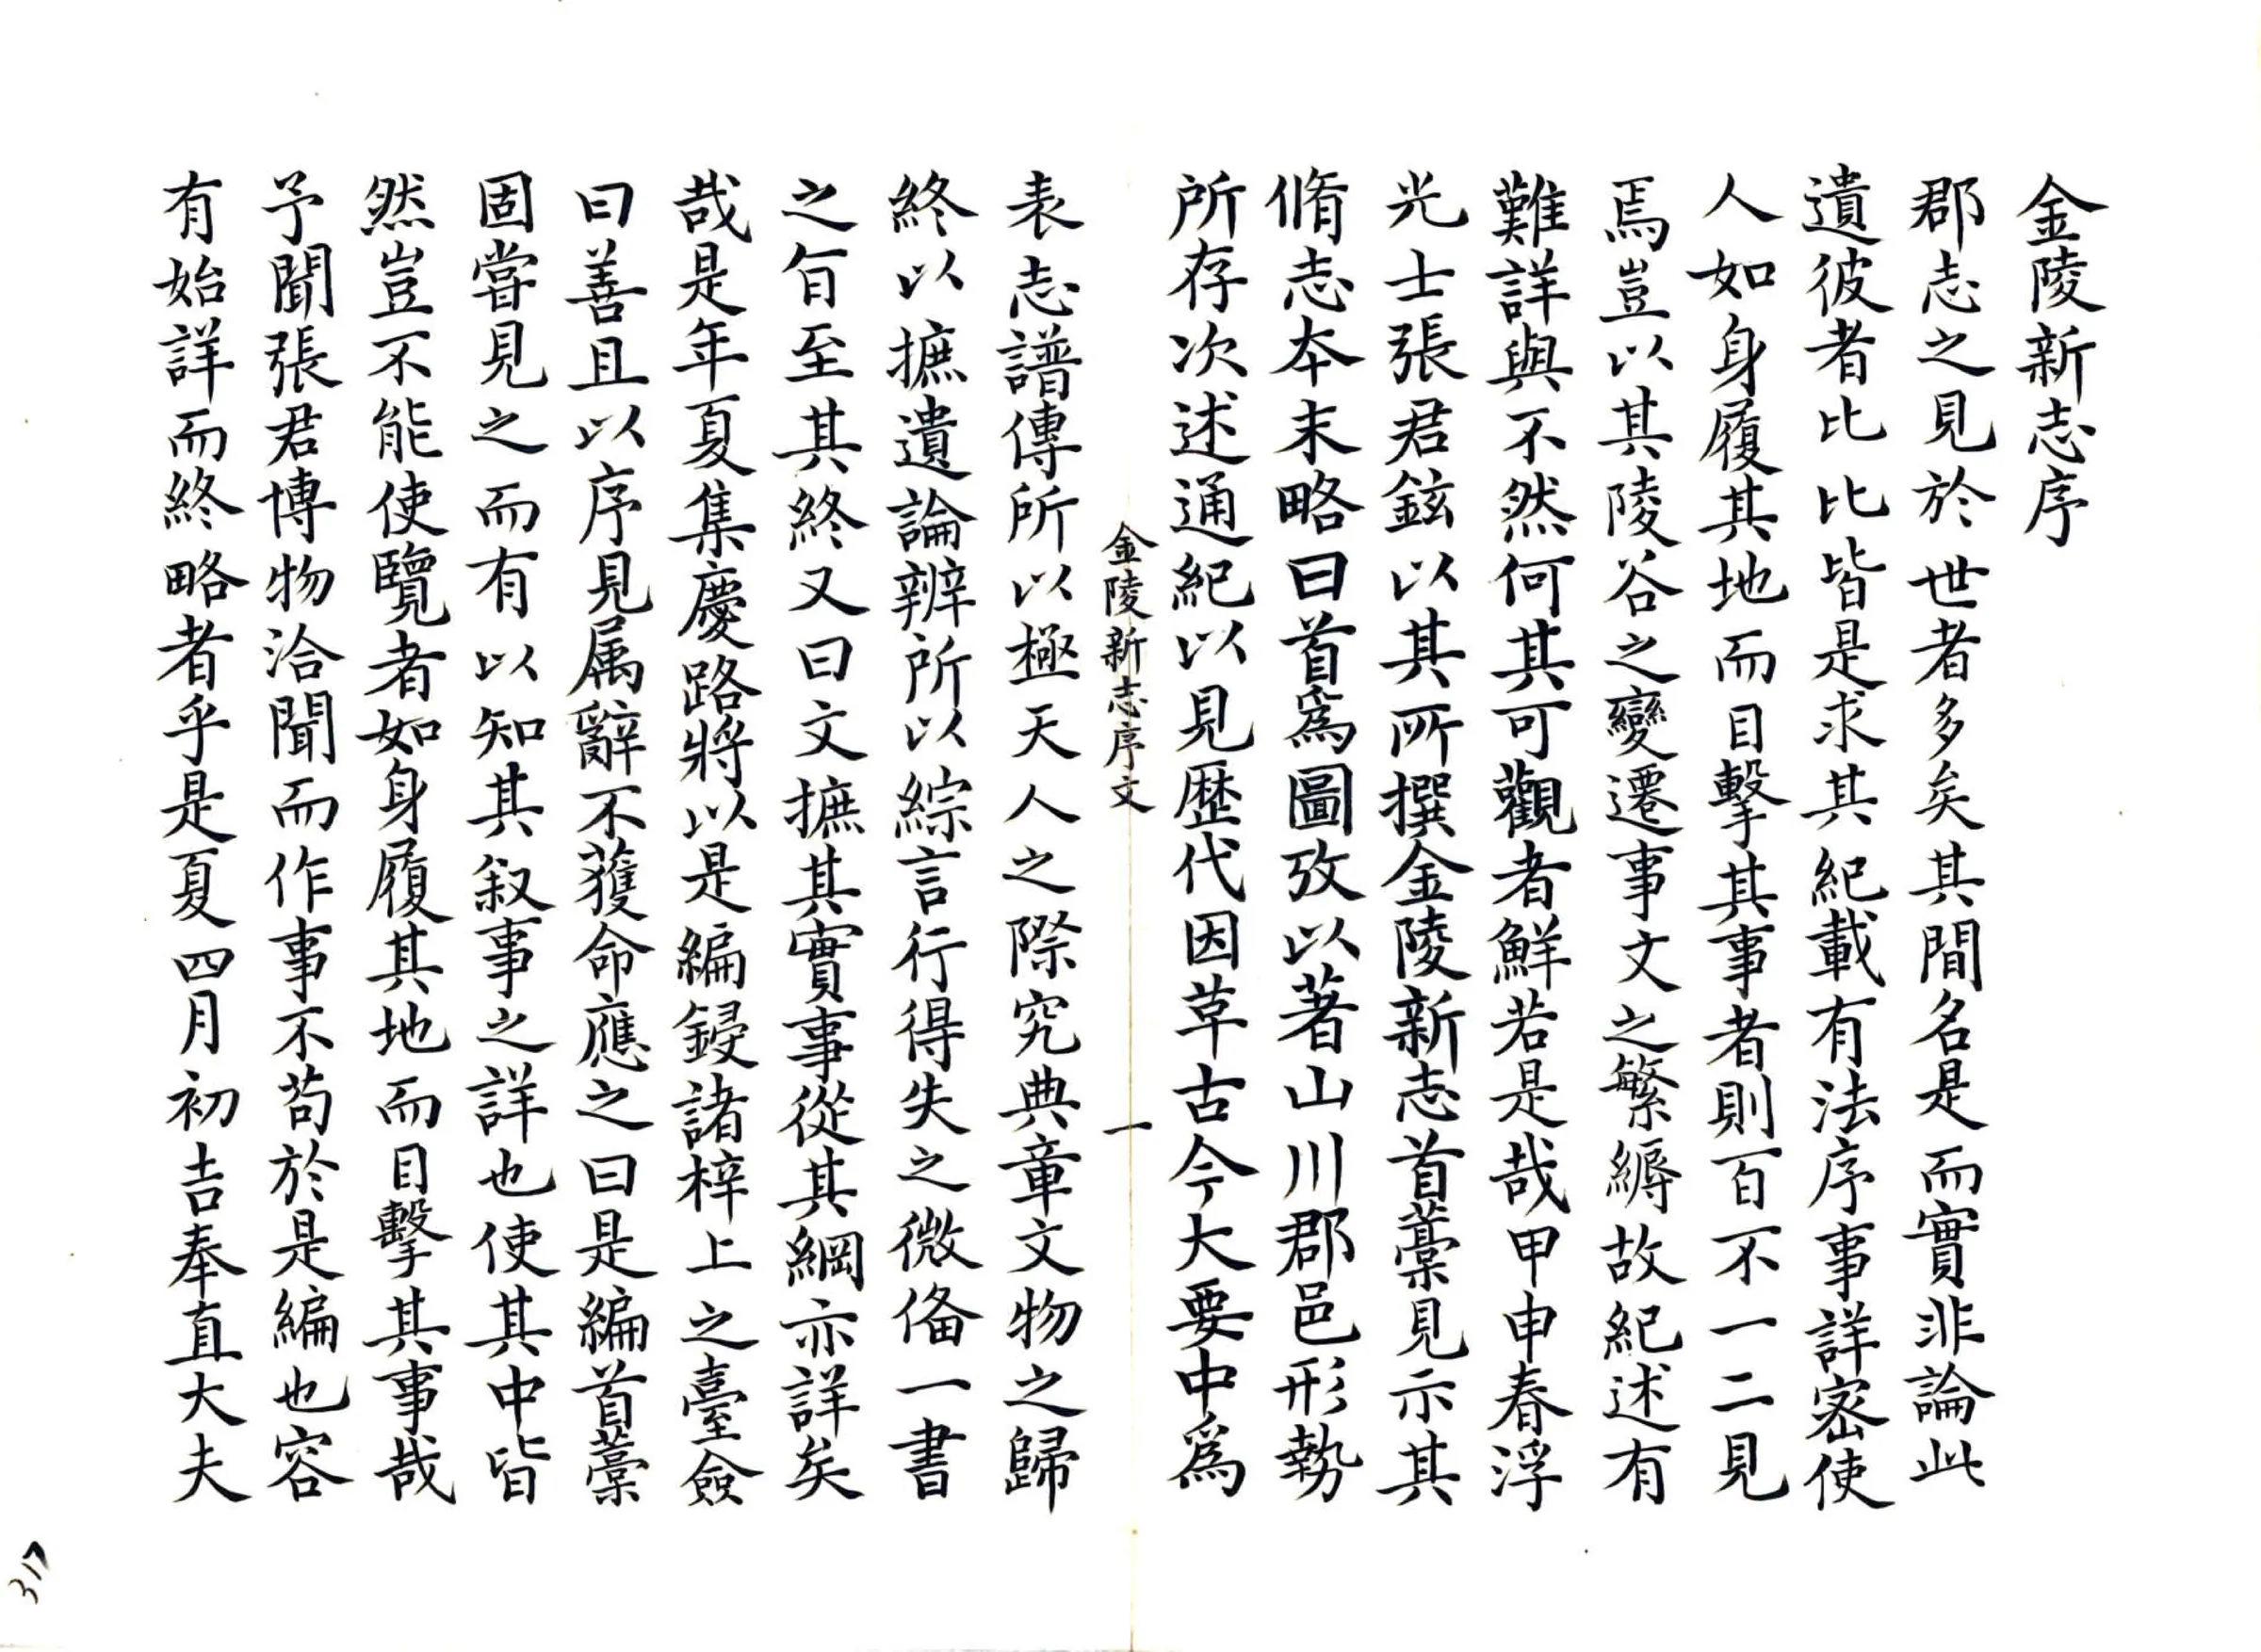 金陵新志序
郡志之見於世者多矣其間名是而實非論此
遺彼者比比皆是求其紀載有法序事詳宻使
人如身履其地而目擊其事者則百不一二見
焉豈以其陵谷之變遷事文之繁縟故紀述有
難詳與不然何其可觀者鮮若是哉甲申春浮
光士張君鉉以其所撰金陵新志首藁見示其
脩志本末略曰首爲圖攷以著山川郡邑形勢
所存次述通紀以見歴代因革古今大要中爲
金陵新志序文
一
表志譜傳所以極天人之際究典章文物之歸
終以摭遺論辨所以綜言行得失之微俻一書
之㫖至其終又曰文摭其實事從其綱亦詳矣
哉是年夏集慶路將以是編鋟諸梓上之臺僉
曰善且以序見属辭不獲命應之曰是編首藁
固嘗見之而有以知其叙事之詳也使其中皆
然豈不能使覽者如身履其地而目擊其事哉
予聞張君博物洽聞而作事不苟於是編也容
有始詳而終略者乎是夏四月初吉奉直大夫
317